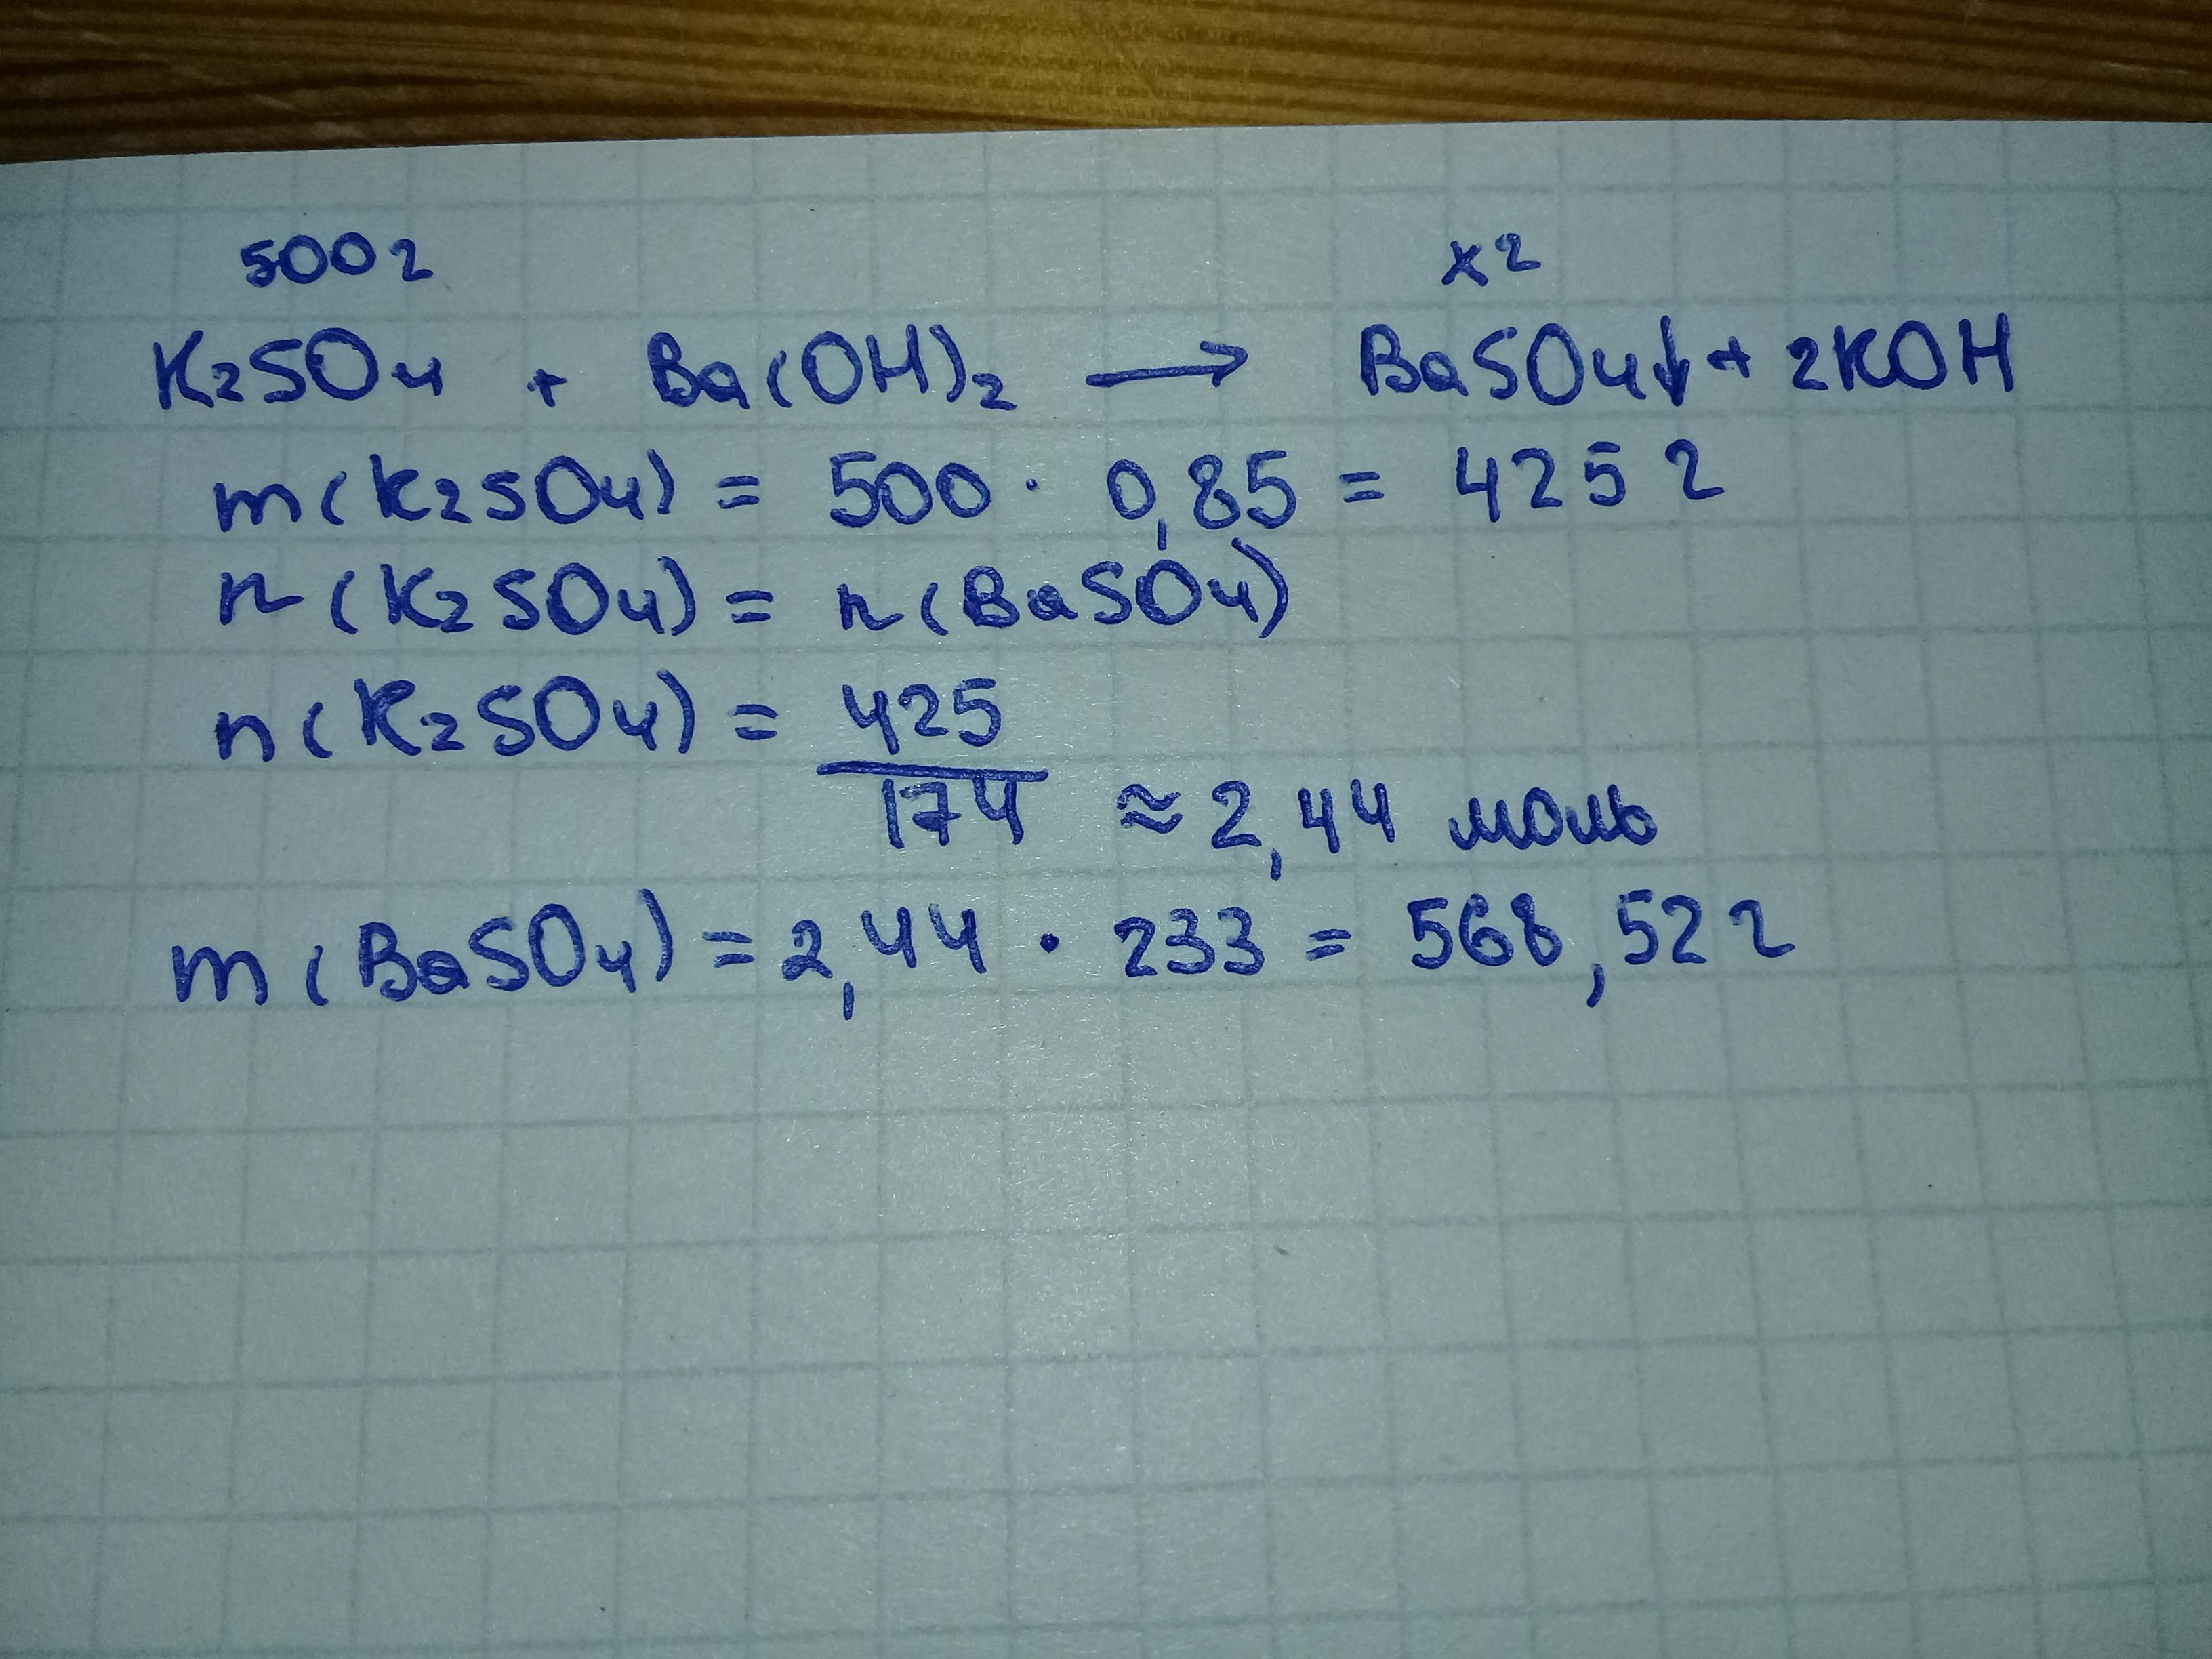 500г хг
K₂SO₄ + Ba(OH)₂ → BaSO₄↓ + 2KOH
m(K₂SO₄) = 500 · 0,85 = 425 г
n(K₂SO₄) = n(BaSO₄)
n(K₂SO₄) = 425
174 ≈ 2,44 моль
m(BaSO₄) = 2,44 · 233 = 568,52 г